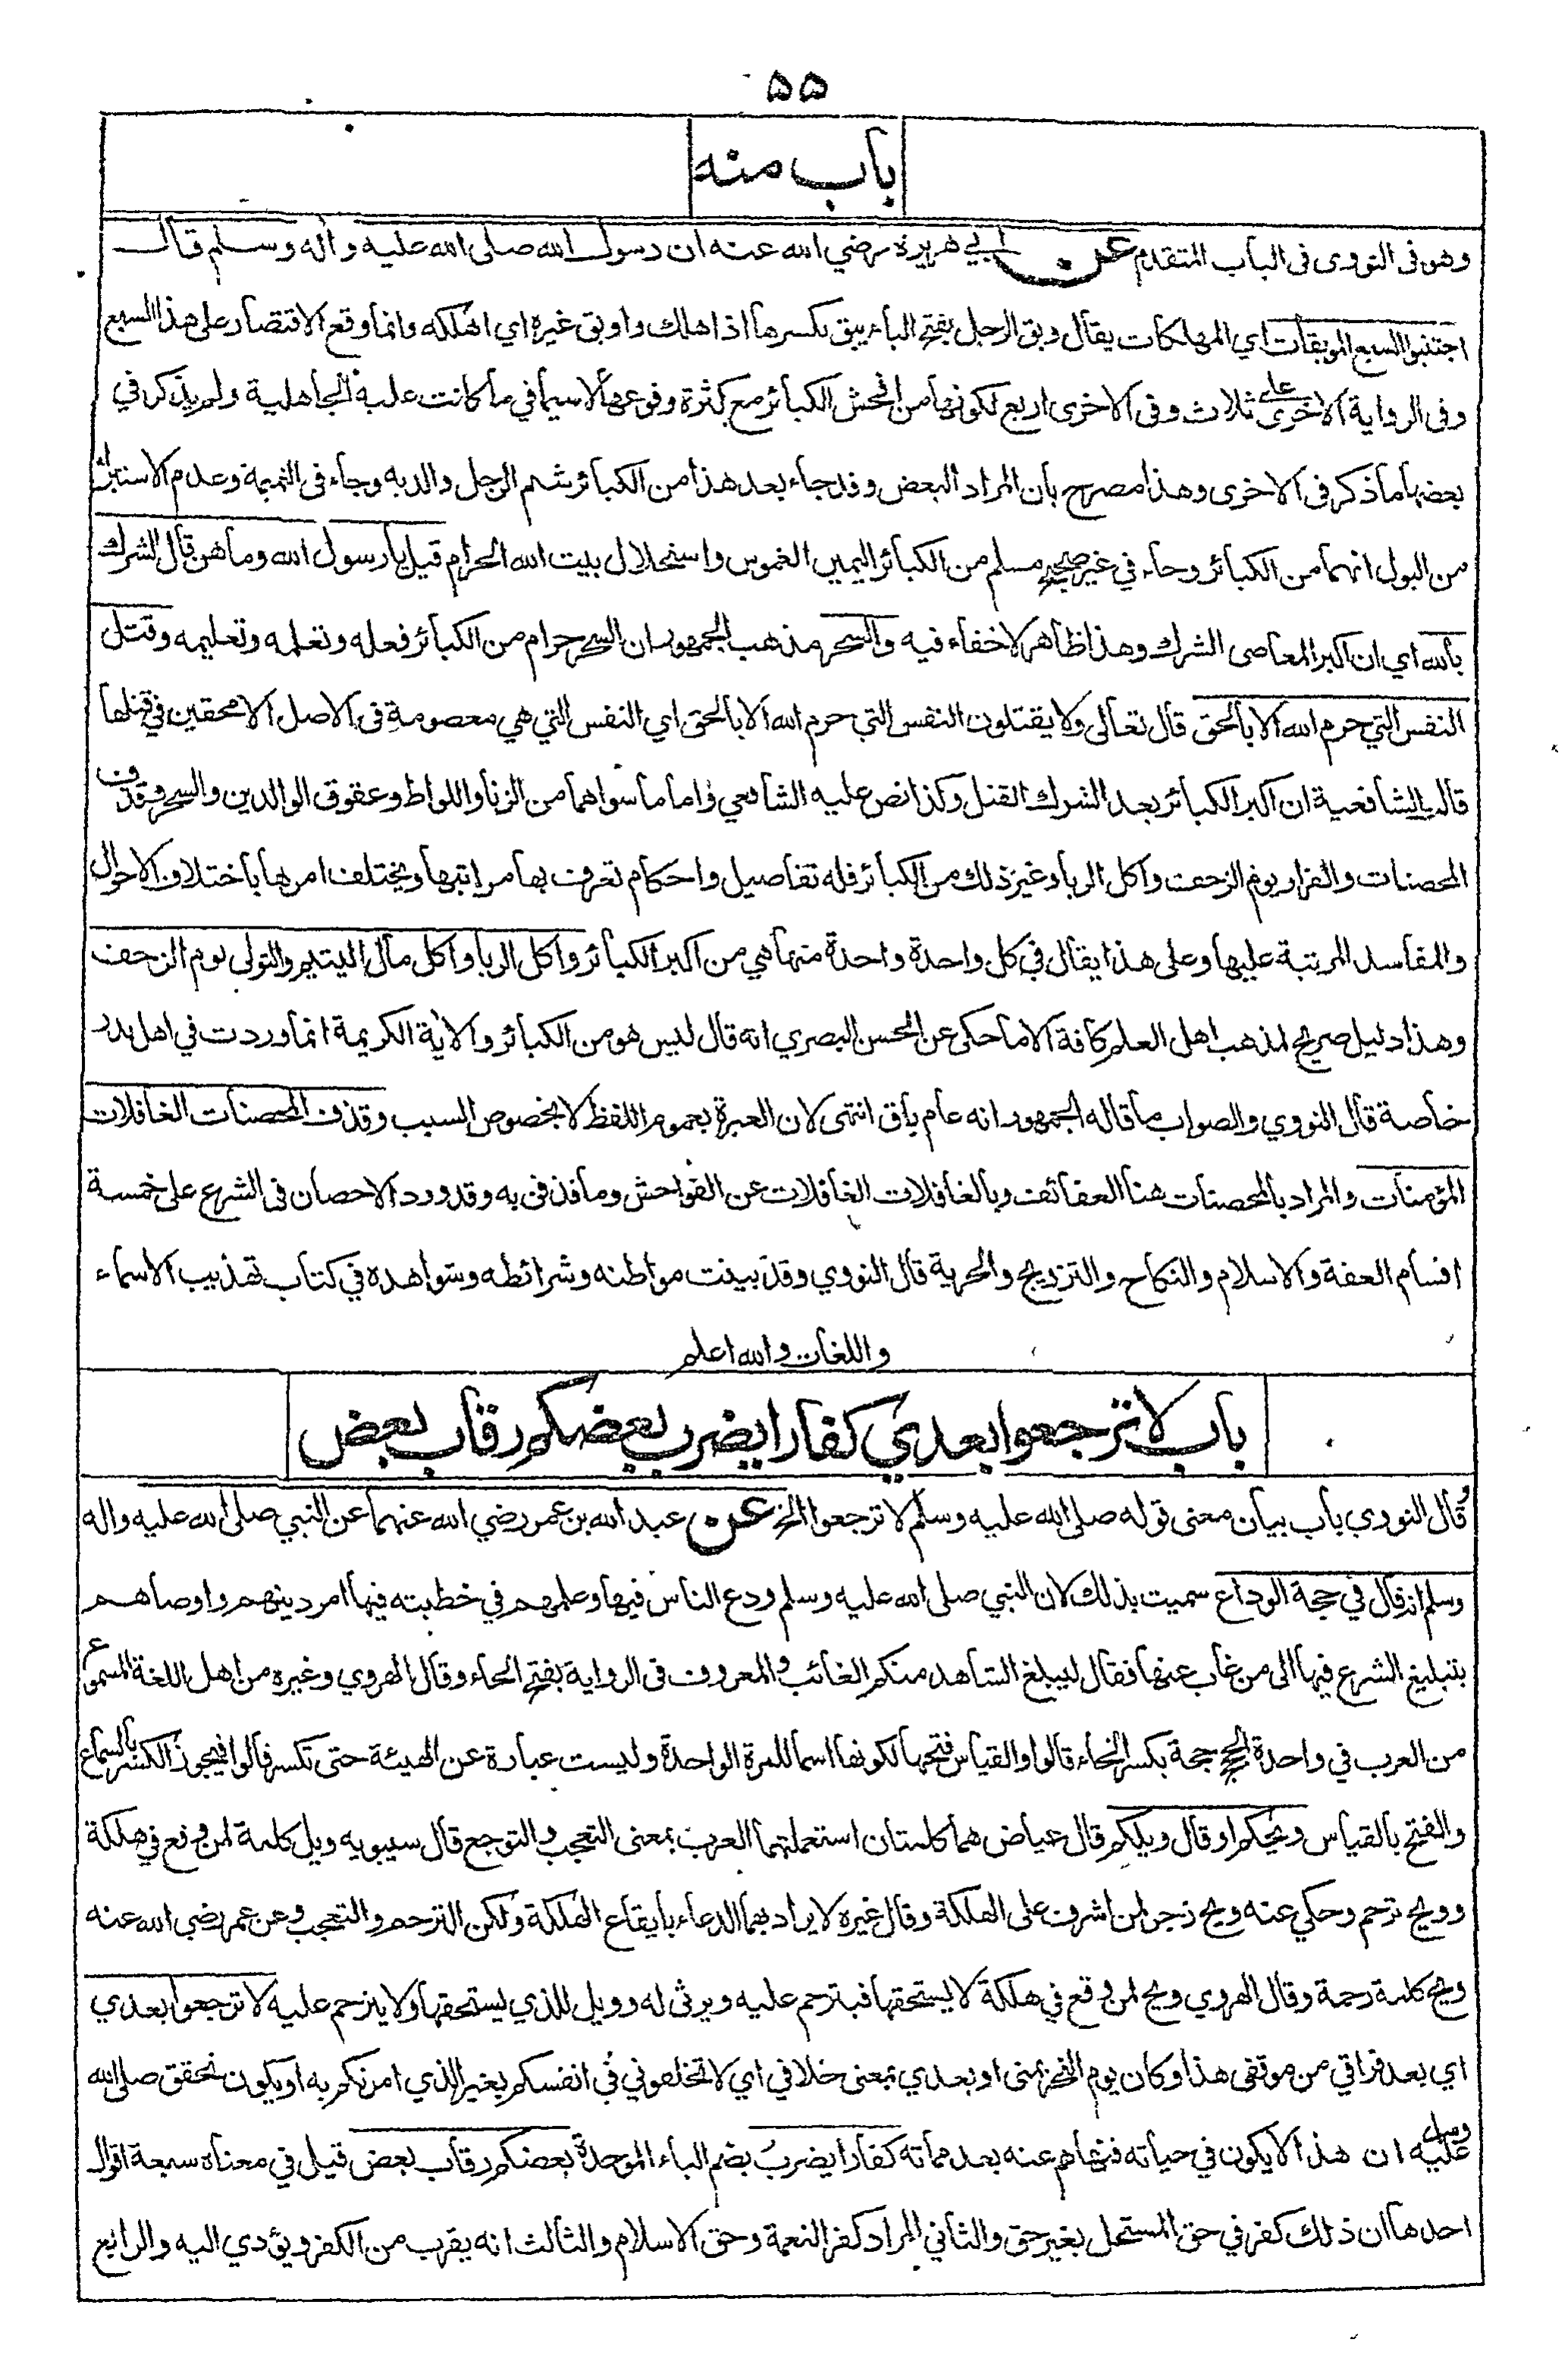 ۵۵
باب منه
وهو في النووى فى الباب المتقدم عن ابي هريرة رضي الله عنه ان رسول الله صلى الله عليه وآله وسلم قال
اجتنبوا السبع الموبقات اي المهلكات يقال وبق الرجل بفتح الباء يبق بكسرها اذا هلك واوبق غيره اي اهلكه وانما وقع الاقتصار على هذا السبع
وفى الرواية الاخرى على ثلاث وفى الاخرى اربع لكونها من افحش الكبائر مع كثرة وقوعها لاسيما في ما كانت عليه الجاهلية ولم يذكر في
بعضها ما ذكر فى الاخرى وهذا مصرح بان المراد البعض وقد جاء بعد هذا من الكبائر شتم الرجل والديه وجاء فى النميمة وعدم الاستبراء
من البول انهما من الكبائر وجاء في غير صحيح مسلم من الكبائر اليمين الغموس واستحلال بيت الله الحرام قيل يا رسول الله وما هن قال الشرك
بالله اي ان اكبر المعاصى الشرك وهذا ظاهر لا خفاء فيه والسحر مذهب الجمهور ان السحر حرام من الكبائر فعله وتعلمه وتعليمه وقتل
النفس التي حرم الله الا بالحق قال تعالى ولا يقتلون النفس التي حرم الله الا بالحق اي النفس التي هي معصومة في الاصل الا محقين في قتلها
قالت الشافعية ان اكبر الكبائر بعد الشرك القتل وكذا نص عليه الشافعي واما ما سواهما من الزنا واللواط وعقوق الوالدين والسحر وقذف
المحصنات والفرار يوم الزحف واكل الربا وغير ذلك من الكبائر فله تفاصيل واحكام تعرف بها مراتبها ويختلف امرها باختلاف الاحوال
والمفاسد المرتبة عليها وعلى هذا يقال في كل واحدة واحدة منها هي من اكبر الكبائر واكل الربا واكل مال اليتيم والتولى يوم الزحف
وهذا دليل صريح لمذهب اهل العلم كافة الا ما حكى عن الحسن البصري انه قال ليس هو من الكبائر والاية الكريمة انما وردت في اهل بدر
خاصة قال النووي والصواب ما قاله الجمهور انه عام باق انتهى لان العبرة بعموم اللفظ لا بخصوص السبب وقذف المحصنات الغافلات
المؤمنات والمراد بالمحصنات هنا العفائف وبالغافلات الغافلات عن الفواحش وما قذفن به وقد ورد الاحصان فى الشرع على خمسة
اقسام العفة والاسلام والنكاح والتزويج والحرية قال النووي وقد بينت مواطنه وشرائطه وشواهده في كتاب تهذيب الاسماء
واللغات والله اعلم
باب لا ترجعوا بعدي كفارا يضرب بعضكم رقاب بعض
وقال النووي باب بيان معنى قوله صلى الله عليه وسلم لا ترجعوا الخ عن عبد الله بن عمر رضي الله عنهما عن النبي صلى الله عليه واله
وسلم انه قال في حجة الوداع سميت بذلك لان النبي صلى الله عليه وسلم ودع الناس فيها وعلمهم في خطبته فيها امر دينهم واوصاهم
بتبليغ الشرع فيها الى من غاب عنها فقال ليبلغ الشاهد منكم الغائب والمعروف فى الرواية بفتح الحاء وقال الهروي وغيره من اهل اللغة المسموع
من العرب في واحدة الحج حجة بكسر الحاء قالوا والقياس فتحها لكونها اسما للمرة الواحدة وليست عبارة عن الهيئة حتى تكسر قالوا فيجوز الكسر بالسماع
والفتح بالقياس ويحكم او قال ويلكم قال عياض هما كلمتان استعملتهما العرب بمعنى التعجب والتوجع قال سيبويه ويل كلمة لمن وقع في هلكة
وويح ترحم وحكي عنه ويح زجر لمن اشرف على الهلكة وقال غيره لا يراد بهما الدعاء بايقاع الهلكة ولكن الترحم والتعجب وعن عمر رضي الله عنه
ويح كلمة رحمة وقال الهروي ويح لمن وقع في هلكة لا يستحقها فيترحم عليه ويرثى له وويل للذي يستحقها ولا يترحم عليه لا ترجعوا بعدي
اي بعد فراقي من موقفى هذا وكان يوم النحر بمنى او بعدي بمعنى خلافي اي لا تخلفوني في انفسكم بغير الذي امرتكم به او يكون تحقق صلى الله
عليه وسلم ان هذا لا يكون في حياته فنهاهم عنه بعد مماته كفارا يضرب بضم الباء الموحدة بعضكم رقاب بعض قيل في معناه سبعة اقوال
احدها ان ذلك كفر في حق المستحل بغير حق والثاني المراد كفر النعمة وحق الاسلام والثالث انه يقرب من الكفر ويؤدي اليه والرابع